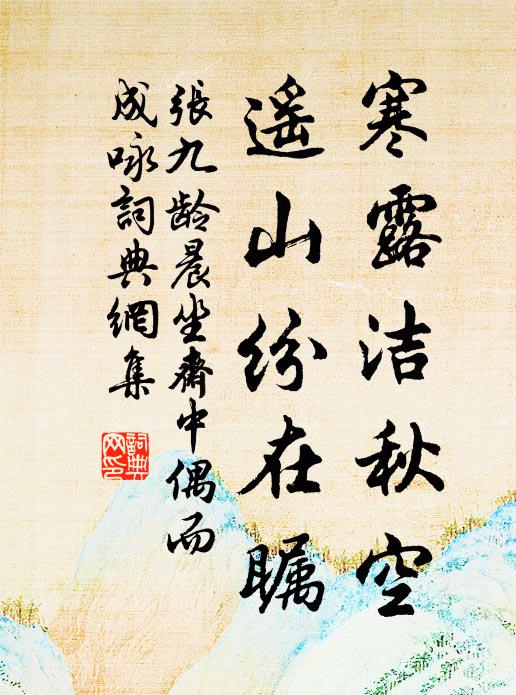 寒露洁秋空
遥山纷在瞩
張九龄晨坐齋中偶而
成咏詞典網集
詞典网印